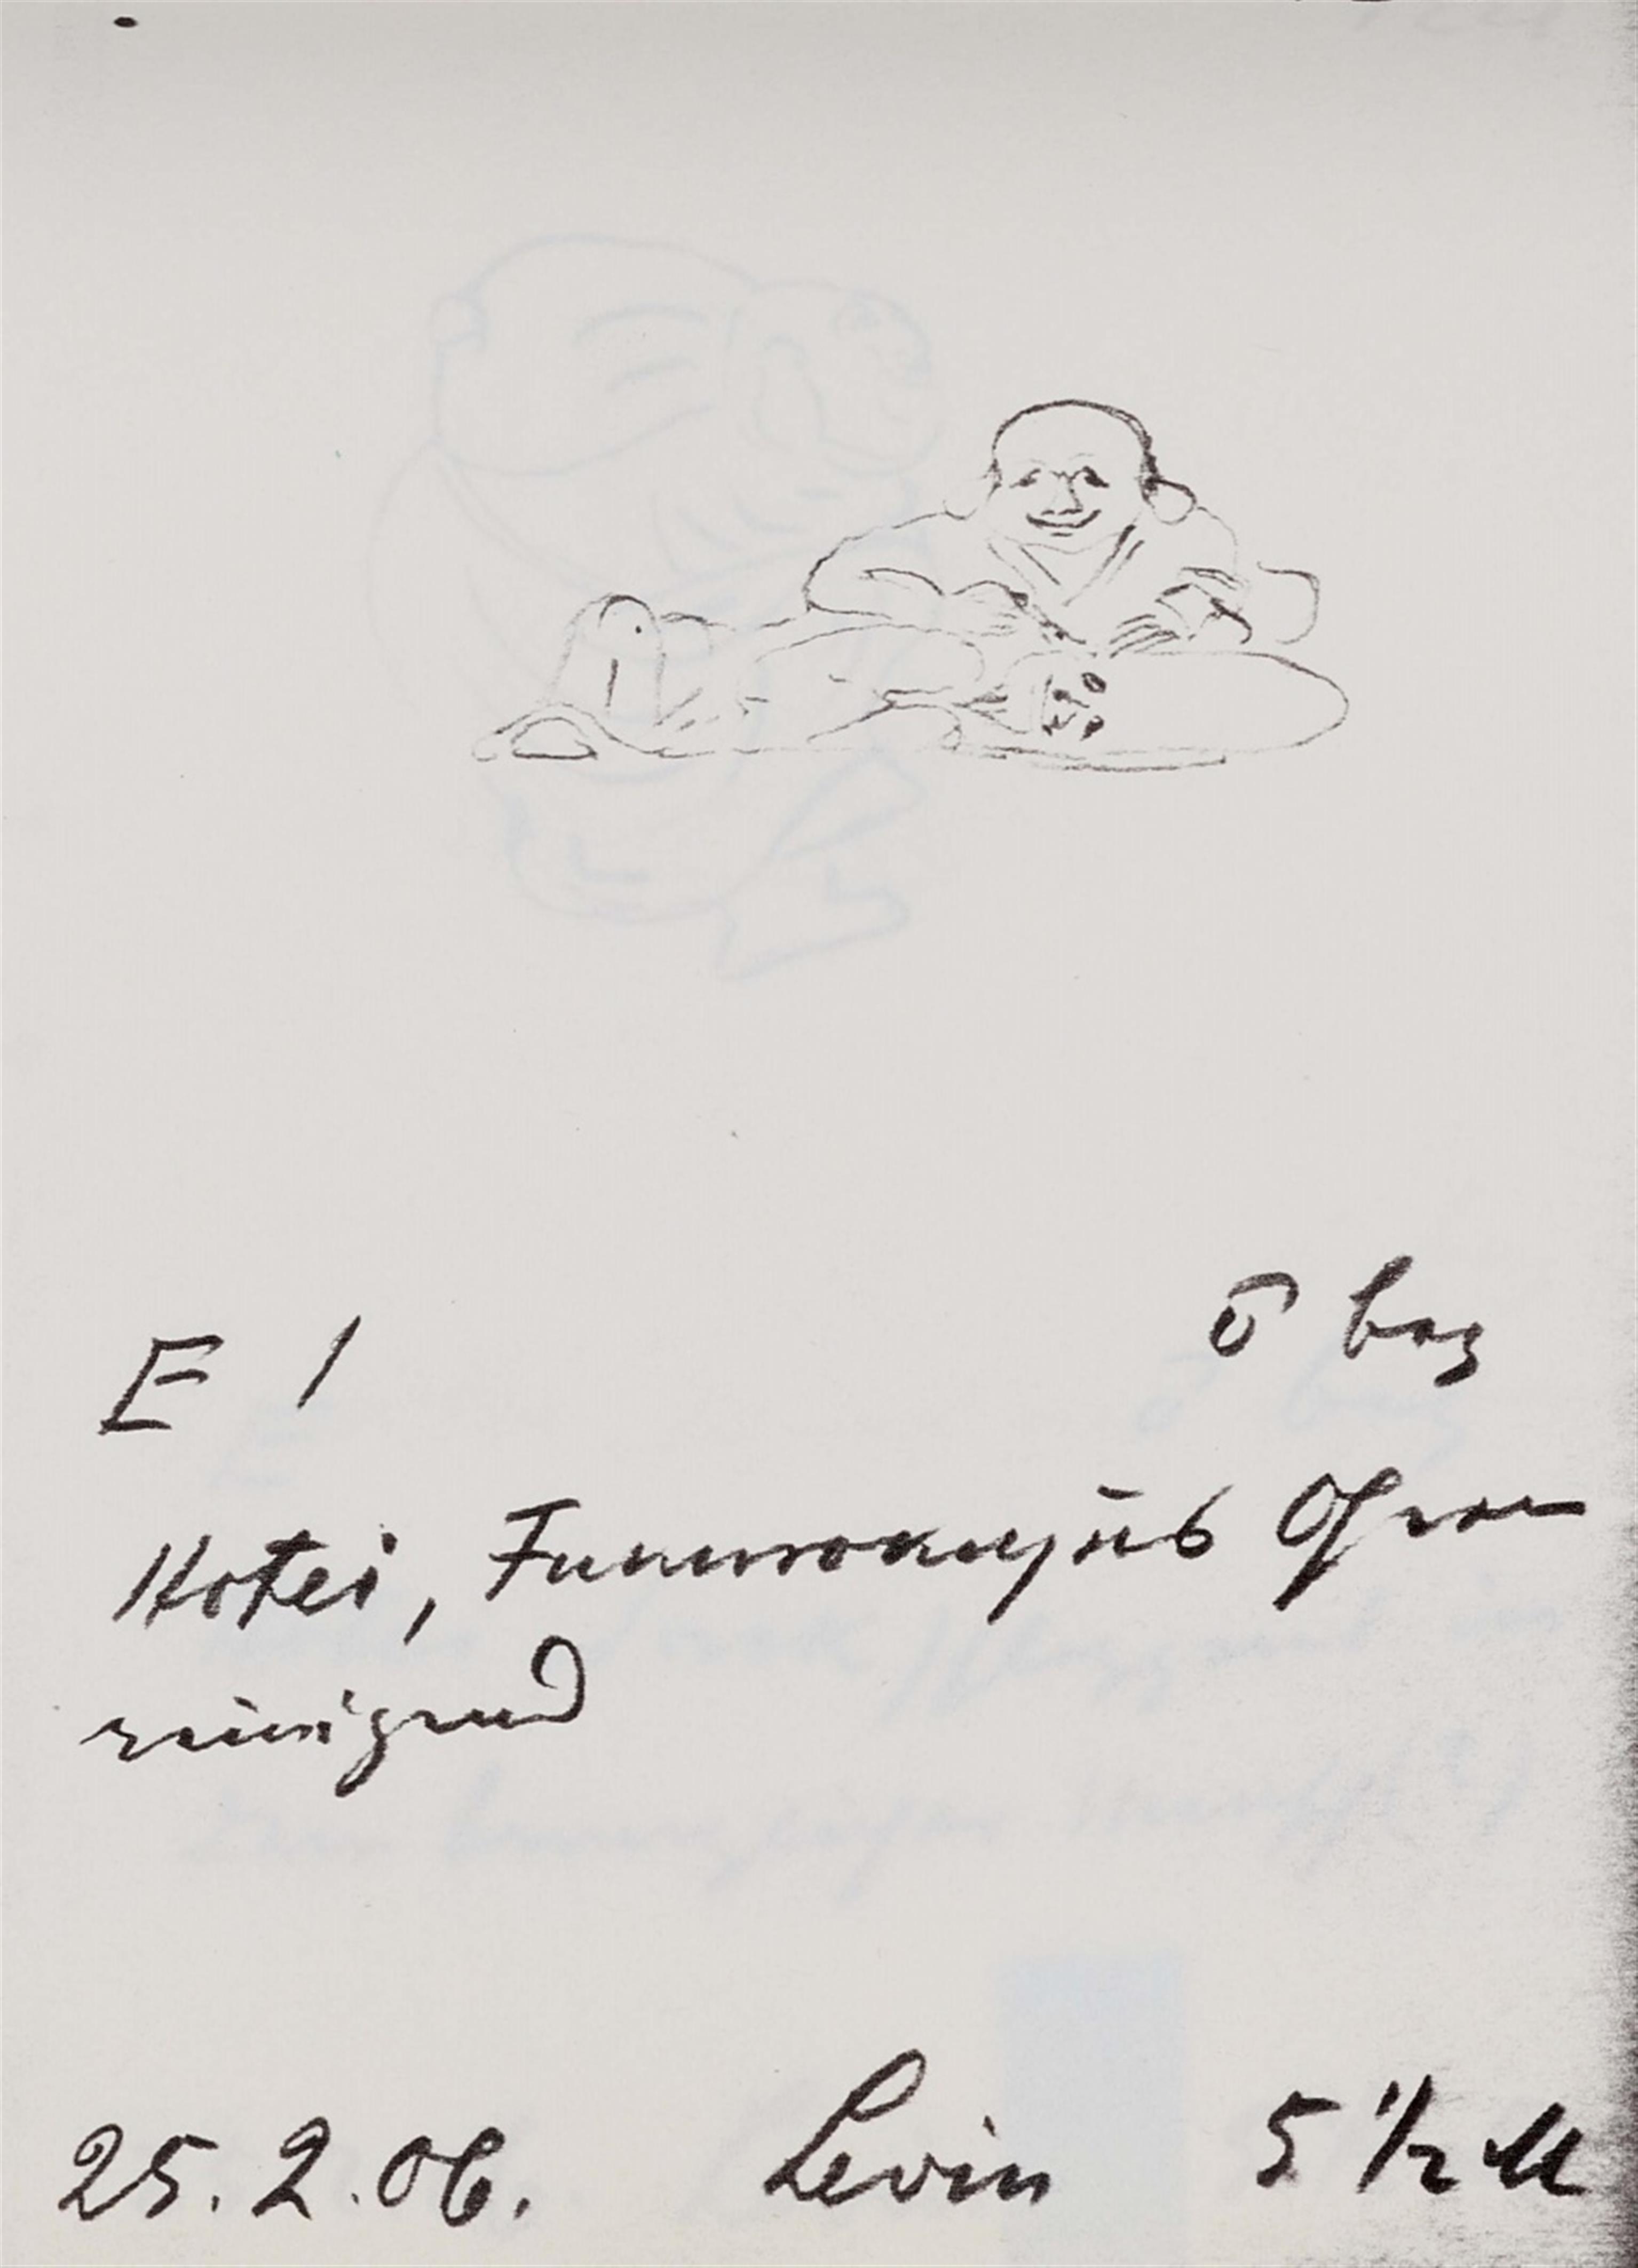 E 1 ō bez
Hotei, Fukurokujus Ohren
reinigend
25.2.06. Levin 5 1/2 M